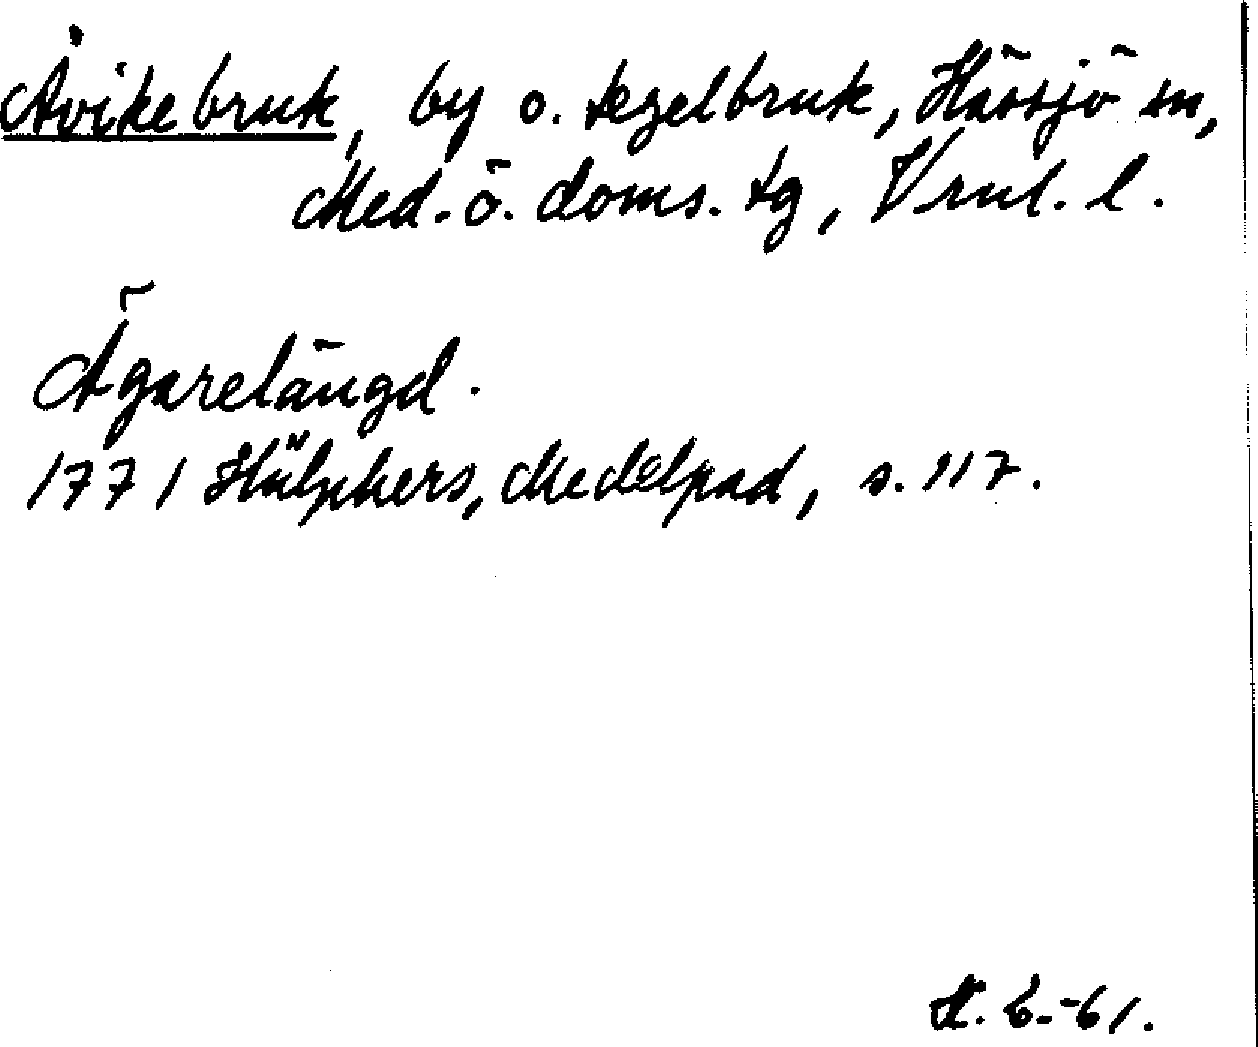 Åvikebruk, by o. tegelbruk, Hässjö sn,
Med. ö. doms. tg, Vrnl. l.
Ägarelängd.
1771 Hülphers, Medelpad, s. 117.
6.-61.